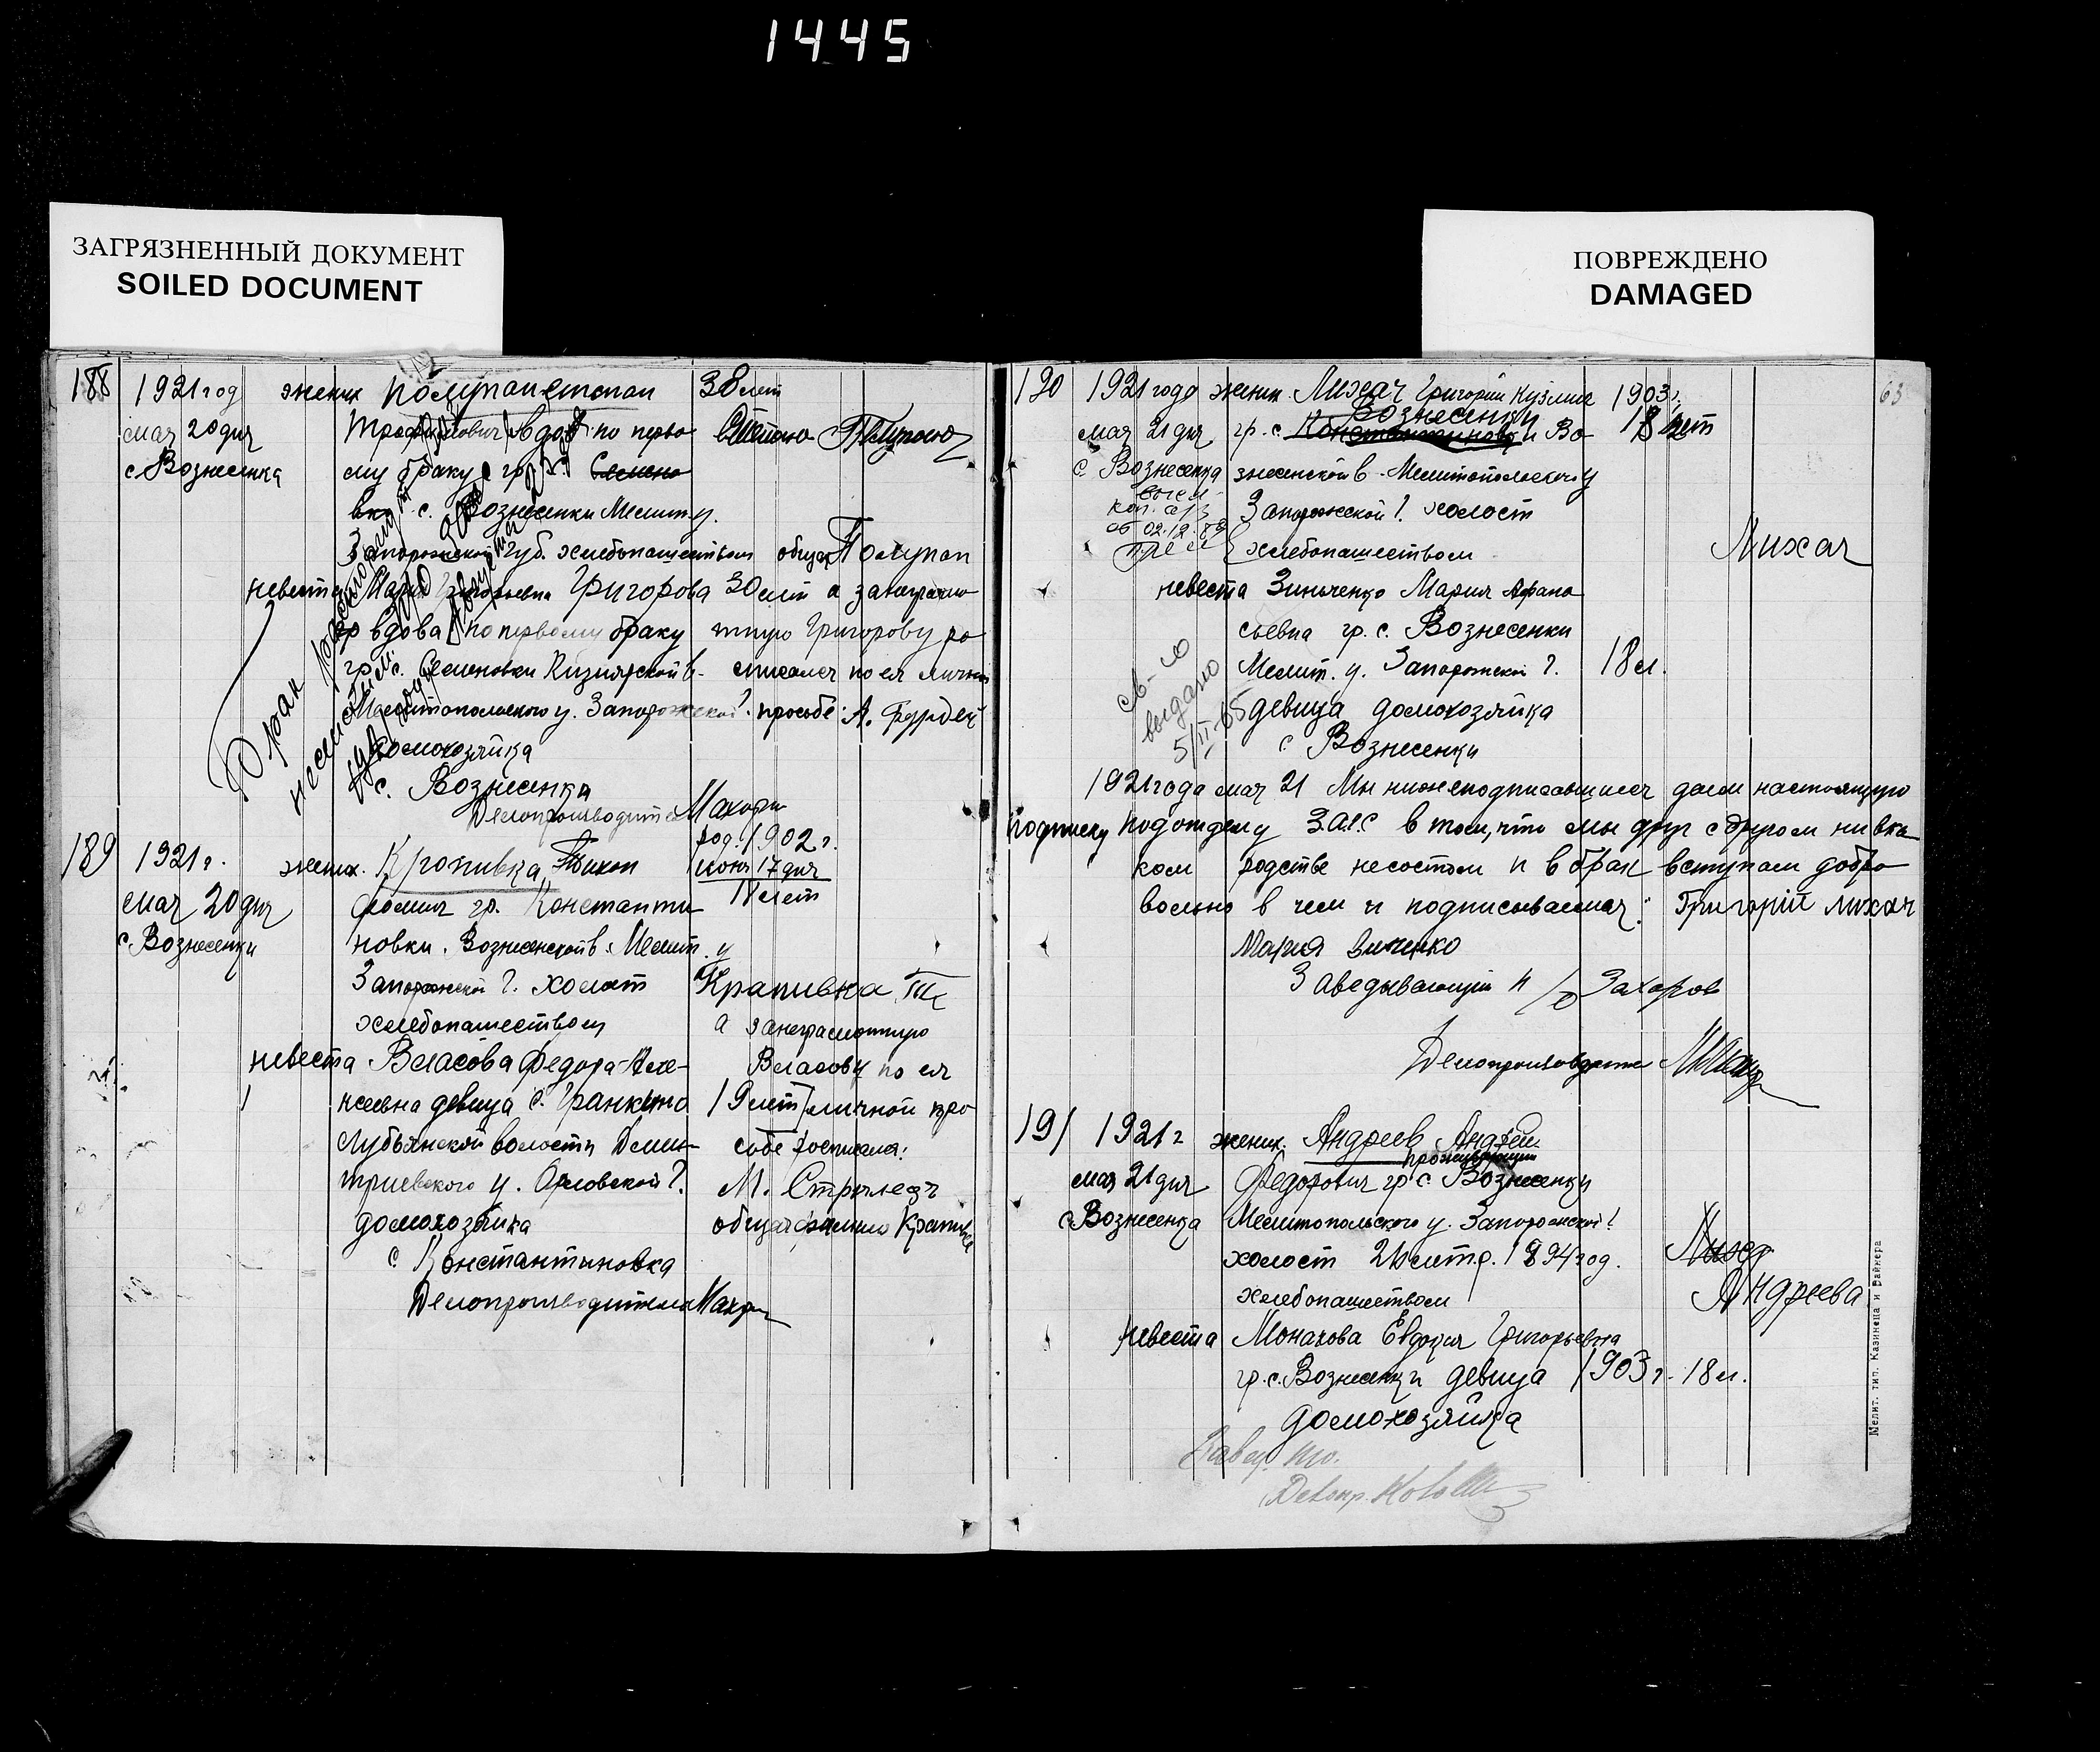 1445
ЗАГРЯЗНЕННЫЙ ДОКУМЕНТ
SOILED DOCUMENT
ПОВРЕЖДЕНО
DAMAGED
188
1921 год
мая 20 дня
с. Вознесенка
жених Полупан Степан
38 лет
вдов по перво
му браку гр.
с. Вознесенки Мелит. у.
Запорожской губ. хлебопашеством
общая Полупан
невеста Мария Григорьевна Григорова 30 лет
а за неграмо
вдова по первому браку
тную Григорову ро
гр. с. Семеновки Кизиярской в.
списался по ея личной
Мелитопольского у. Запорожской г.
просьбе: А.
домохозяйка
с. Вознесенка
Делопроизводитель
Брак
189
1921 г.
мая 20 дня
с. Вознесенки
жених. Кропивка Тихон
род. 1902 г.
июня 17 дня
18 лет
Фомич гр. Константи
новки. Вознесенской в. Мелит. у
Запорожской г. холост
Крапивка
хлебопашеством
а за неграмотную
невеста Власова Федора Але-
Власову по ея
ксеевна девица с. Гранкино
19 лет
личной про
Лубьянской волости Дми-
сьбе росписался:
триевского у. Орловской г.
М. Стрилець
домохозяйка
общая фамилия Крапивка
с Константиновка
Делопроизводитель
63
190
1921 года жених. Лихач Григорий Кузмич 1903 г.
Вознесенки
мая 21 дня гр. с. Константиновки Во
18 лет
с. Вознесенка
знесенской в. Мелитопольского у
Запорожской г. холост
хлебопашеством
Лихач
невеста Зинченко Мария Афана
сьевна гр. с. Вознесенки
Мелит. у. Запорожской г. 18 л.
св-во
выдано
5/II-65
девица домохозяйка
с Вознесенки
1921 года мая 21 Мы нижеподписавшиеся даем настоящую
подписку подотделу ЗАГС в том, что мы друг с другом ни в ка
ком родстве не состоим и в брак вступаем добро
вольно в чем и подписываемся: Григорій Лихач
Мария Зинченко
Заведывающий п/о Захаров
Делопроизводитель
191
1921 г жених. Андреев Андрей
проживающий
мая 21 дня Федорович гр. с. Вознесенки
с Вознесенка Мелитопольского у. Запорожской г
холост 26 лет р. 1894 год.
хлебопашеством
Андреева
невеста Монахова Евдокия Григорьевна
гр. с. Вознесенки девица 1903 г. 18 л.
домохозяйка
Мелит. тип. Казинеца и Вайнера